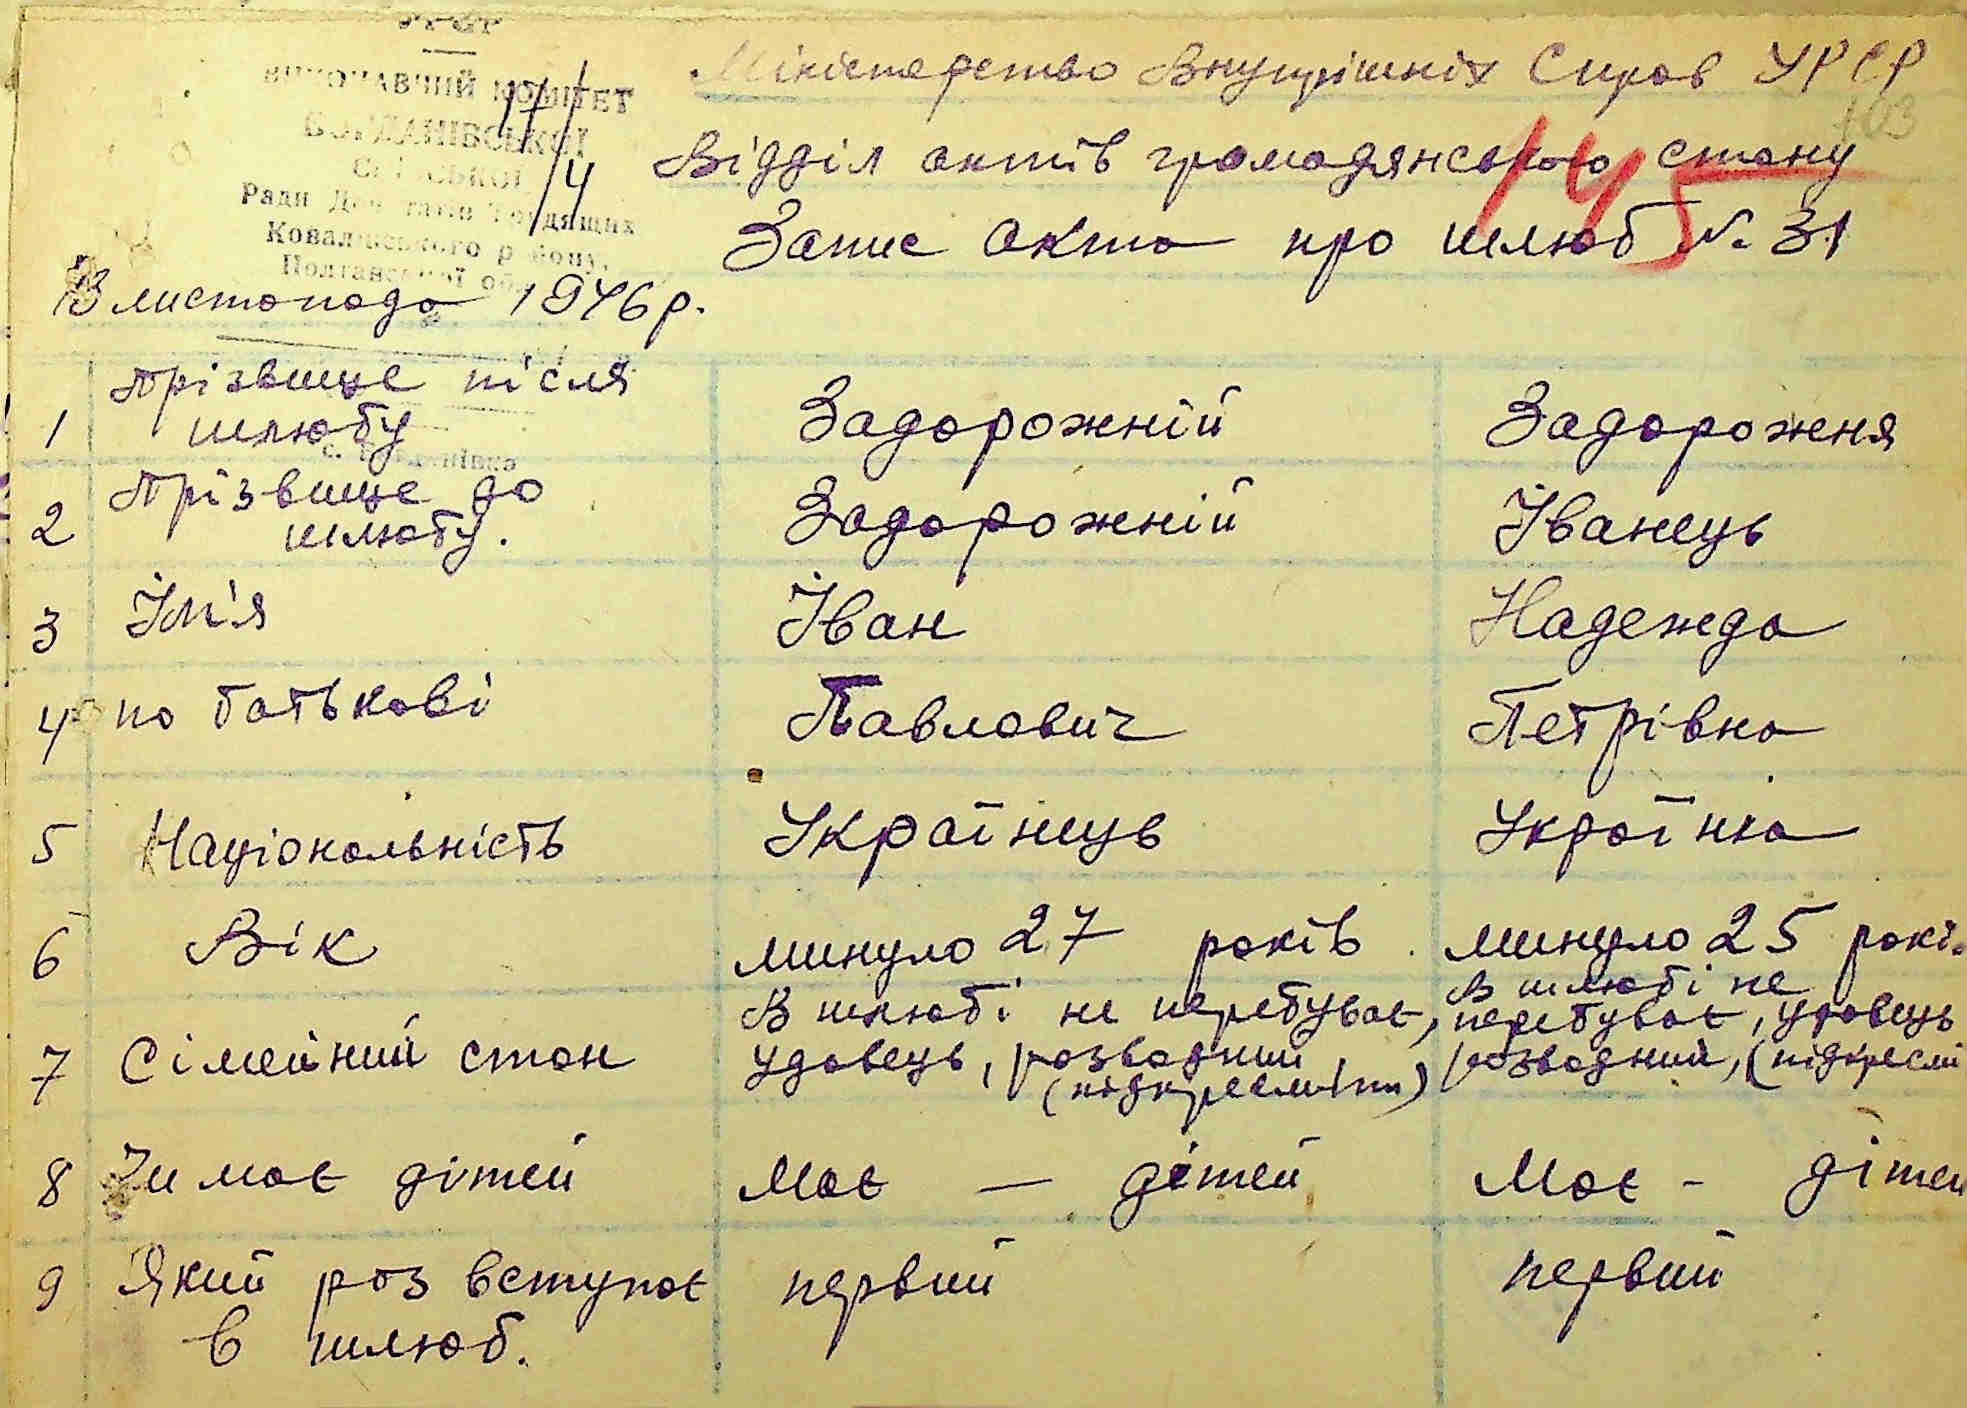 УРСР
ВИКОНАВЧИЙ КОМІТЕТ
БОГДАНІВСЬКОЇ
Сільської
Ради Депутатів Трудящих
Ковалівського району,
Полтавської обл.
с. Богданівка
Міністерство Внутрішніх Справ УРСР
103
Відділ актів громадянського стану
145
Запис акта про шлюб № 31
13 листопада 1946 р.
1 Прізвище після шлюбу Задорожній Задорожня
2 Прізвище до шлюбу. Задорожній Іванець
3 Ім'я Іван Надежда
4 по батькові Павлович Петрівна
5 Національність Українець Українка
6 Вік минуло 27 років минуло 25 рокі
7 Сімейний стан В шлюбі не перебуває, удовець, розводний, (підкреслити) В шлюбі не перебуває, удовець розводний, (підкресли
8 Чи має дітей Має — дітей Має - дітей
9 Який раз вступає в шлюб. первий первий